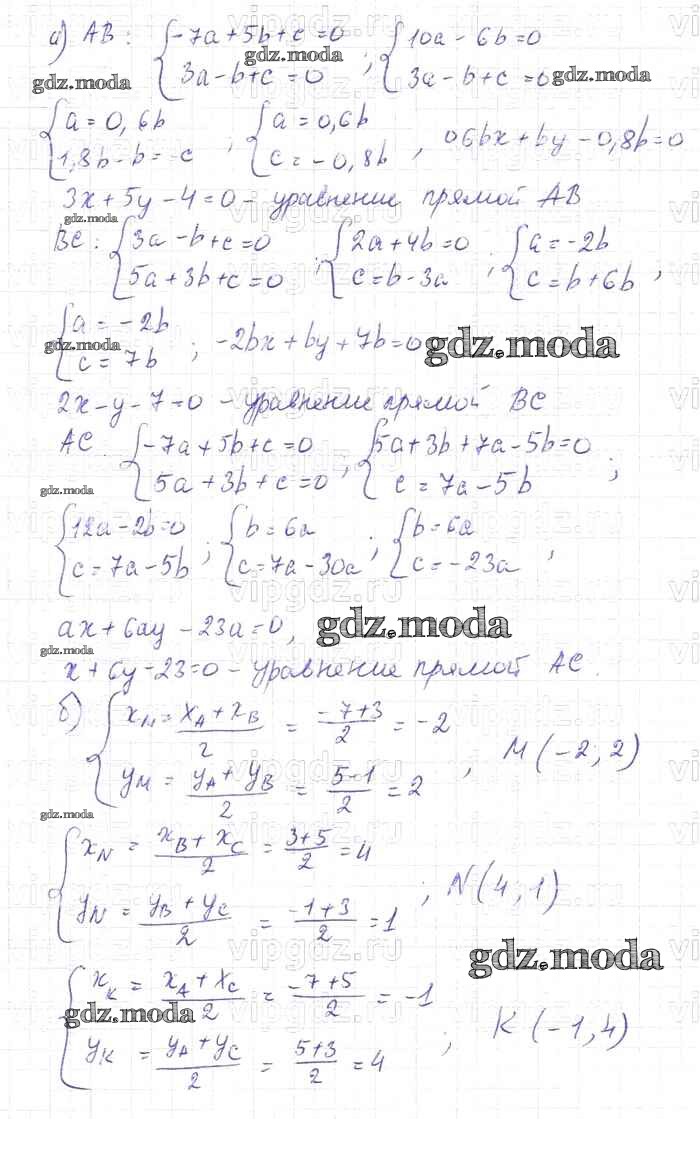 а) AB: {-7a+5b+c=0 ; {10a-6b=0
{3a-b+c=0 {3a-b+c=0
gdz.moda gdz.moda gdz.moda
{a=0,6b ; {a=0,6b , 06bx+by-0,8b=0
{1,8b-b=-c {c=-0,8b
3x+5y-4=0 - уравнение прямой AB
gdz.moda
BC: {3a-b+c=0 ; {2a+4b=0 ; {a=-2b
{5a+3b+c=0 {c=b-3a {c=b+6b ,
{a=-2b ; -2bx+by+7b=0
{c=7b
gdz.moda gdz.moda
2x-y-7=0 - уравнение прямой BC
AC {-7a+5b+c=0 , {5a+3b+7a-5b=0 ;
{5a+3b+c=0 {c=7a-5b
gdz.moda
{12a-2b=0 ; {b=6a ; {b=6a ,
{c=7a-5b {c=7a-30a {c=-23a
ax+6ay-23a=0,
gdz.moda
gdz.moda
x+6y-23=0 - уравнение прямой AC.
б) {x_M = (x_A+x_B)/2 = (-7+3)/2 = -2
{y_M = (y_A+y_B)/2 = (5-1)/2 = 2 , M(-2;2)
gdz.moda
{x_N = (x_B+x_C)/2 = (3+5)/2 = 4
{y_N = (y_B+y_C)/2 = (-1+3)/2 = 1 ; N(4;1)
gdz.moda
{x_K = (x_A+x_C)/2 = (-7+5)/2 = -1
gdz.moda
{y_K = (y_A+y_C)/2 = (5+3)/2 = 4 ; K(-1,4)
vipgdz.ru